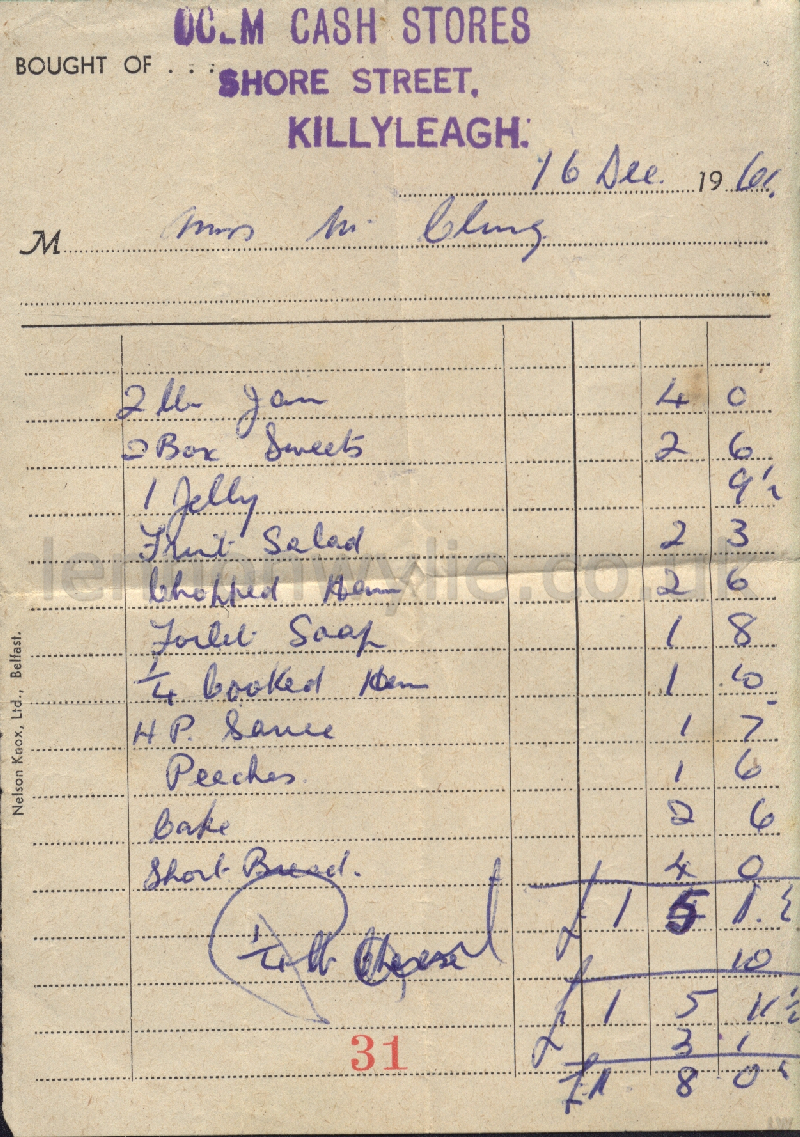 UCLM CASH STORES
BOUGHT OF . . .
SHORE STREET,
KILLYLEAGH.
16 Dec. 19
M Mrs Mc Clung
2 lb Jam 4 0
2 Box Sweets 2 6
1 Jelly 9½
Fruit Salad 2 3
lennonwylie.co.uk
Chopped Ham 2 6
Toilet Soap 1 8
¼ Cooked Ham 1 10
H P. Sauce 1 7
Peaches 1 6
Cake 2 6
Short Bread. 4 0
£ 1 5 1.½
¼ lb Cheese 10
£ 1 5 11½
31 3 1
£1 8 0½
Nelson Knox, Ltd., Belfast.